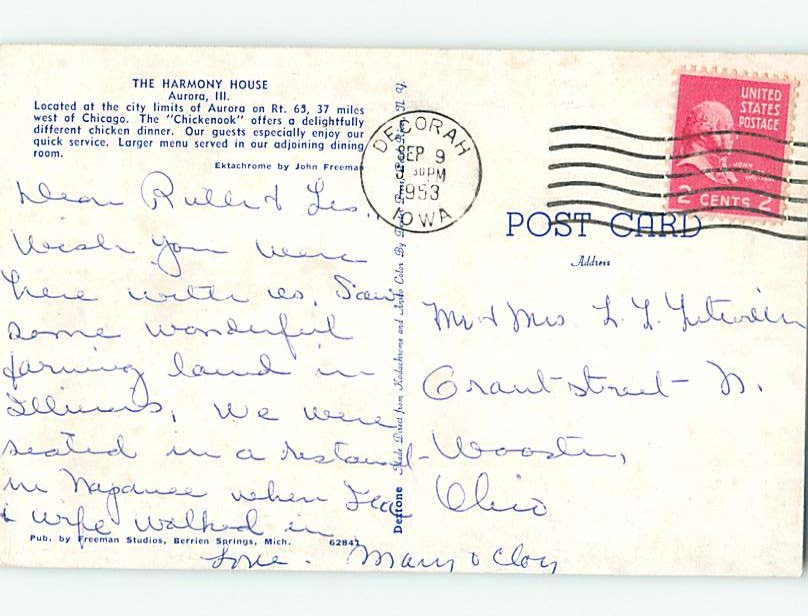 THE HARMONY HOUSE
Aurora, Ill.
Located at the city limits of Aurora on Rt. 65, 37 miles
west of Chicago. The "Chickenook" offers a delightfully
different chicken dinner. Our guests especially enjoy our
quick service. Larger menu served in our adjoining dining
room.
Ektachrome by John Freeman
Dear Ruth & Les.,
Wish you were
here with us. Saw
some wonderful
farming land in
Illinois, We were
seated in a restaurant
in when
& wife walked in
Love. Mary & Cloy
Pub. by Freeman Studios, Berrien Springs, Mich. 62841
Dextone Made Direct from Kodachrome and Ansco Color By
DECORAH
SEP 9
30 PM
1953
IOWA
UNITED
STATES
POSTAGE
JOHN
2 CENTS 2
POST CARD
Address
Mr & Mrs. L. L.
Grant street N.
Wooster,
Ohio